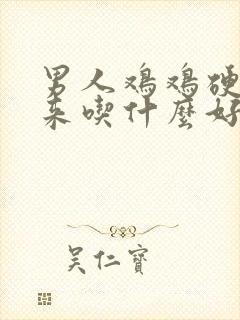 男人鸡鸡硬
来喫什麼好
吴仁寶